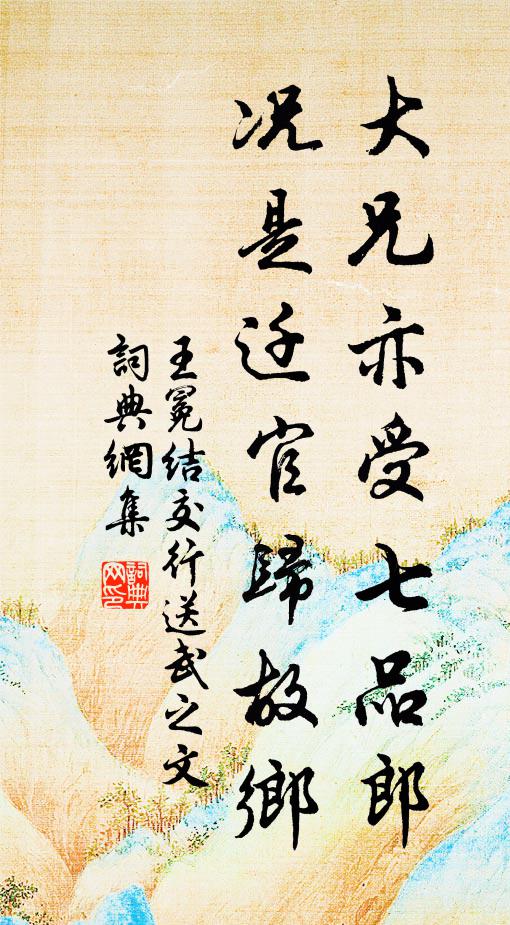 大兄亦受七品郎
况是迁官歸故鄉
王冕結交行送武之文
詞典網集
詞典網印